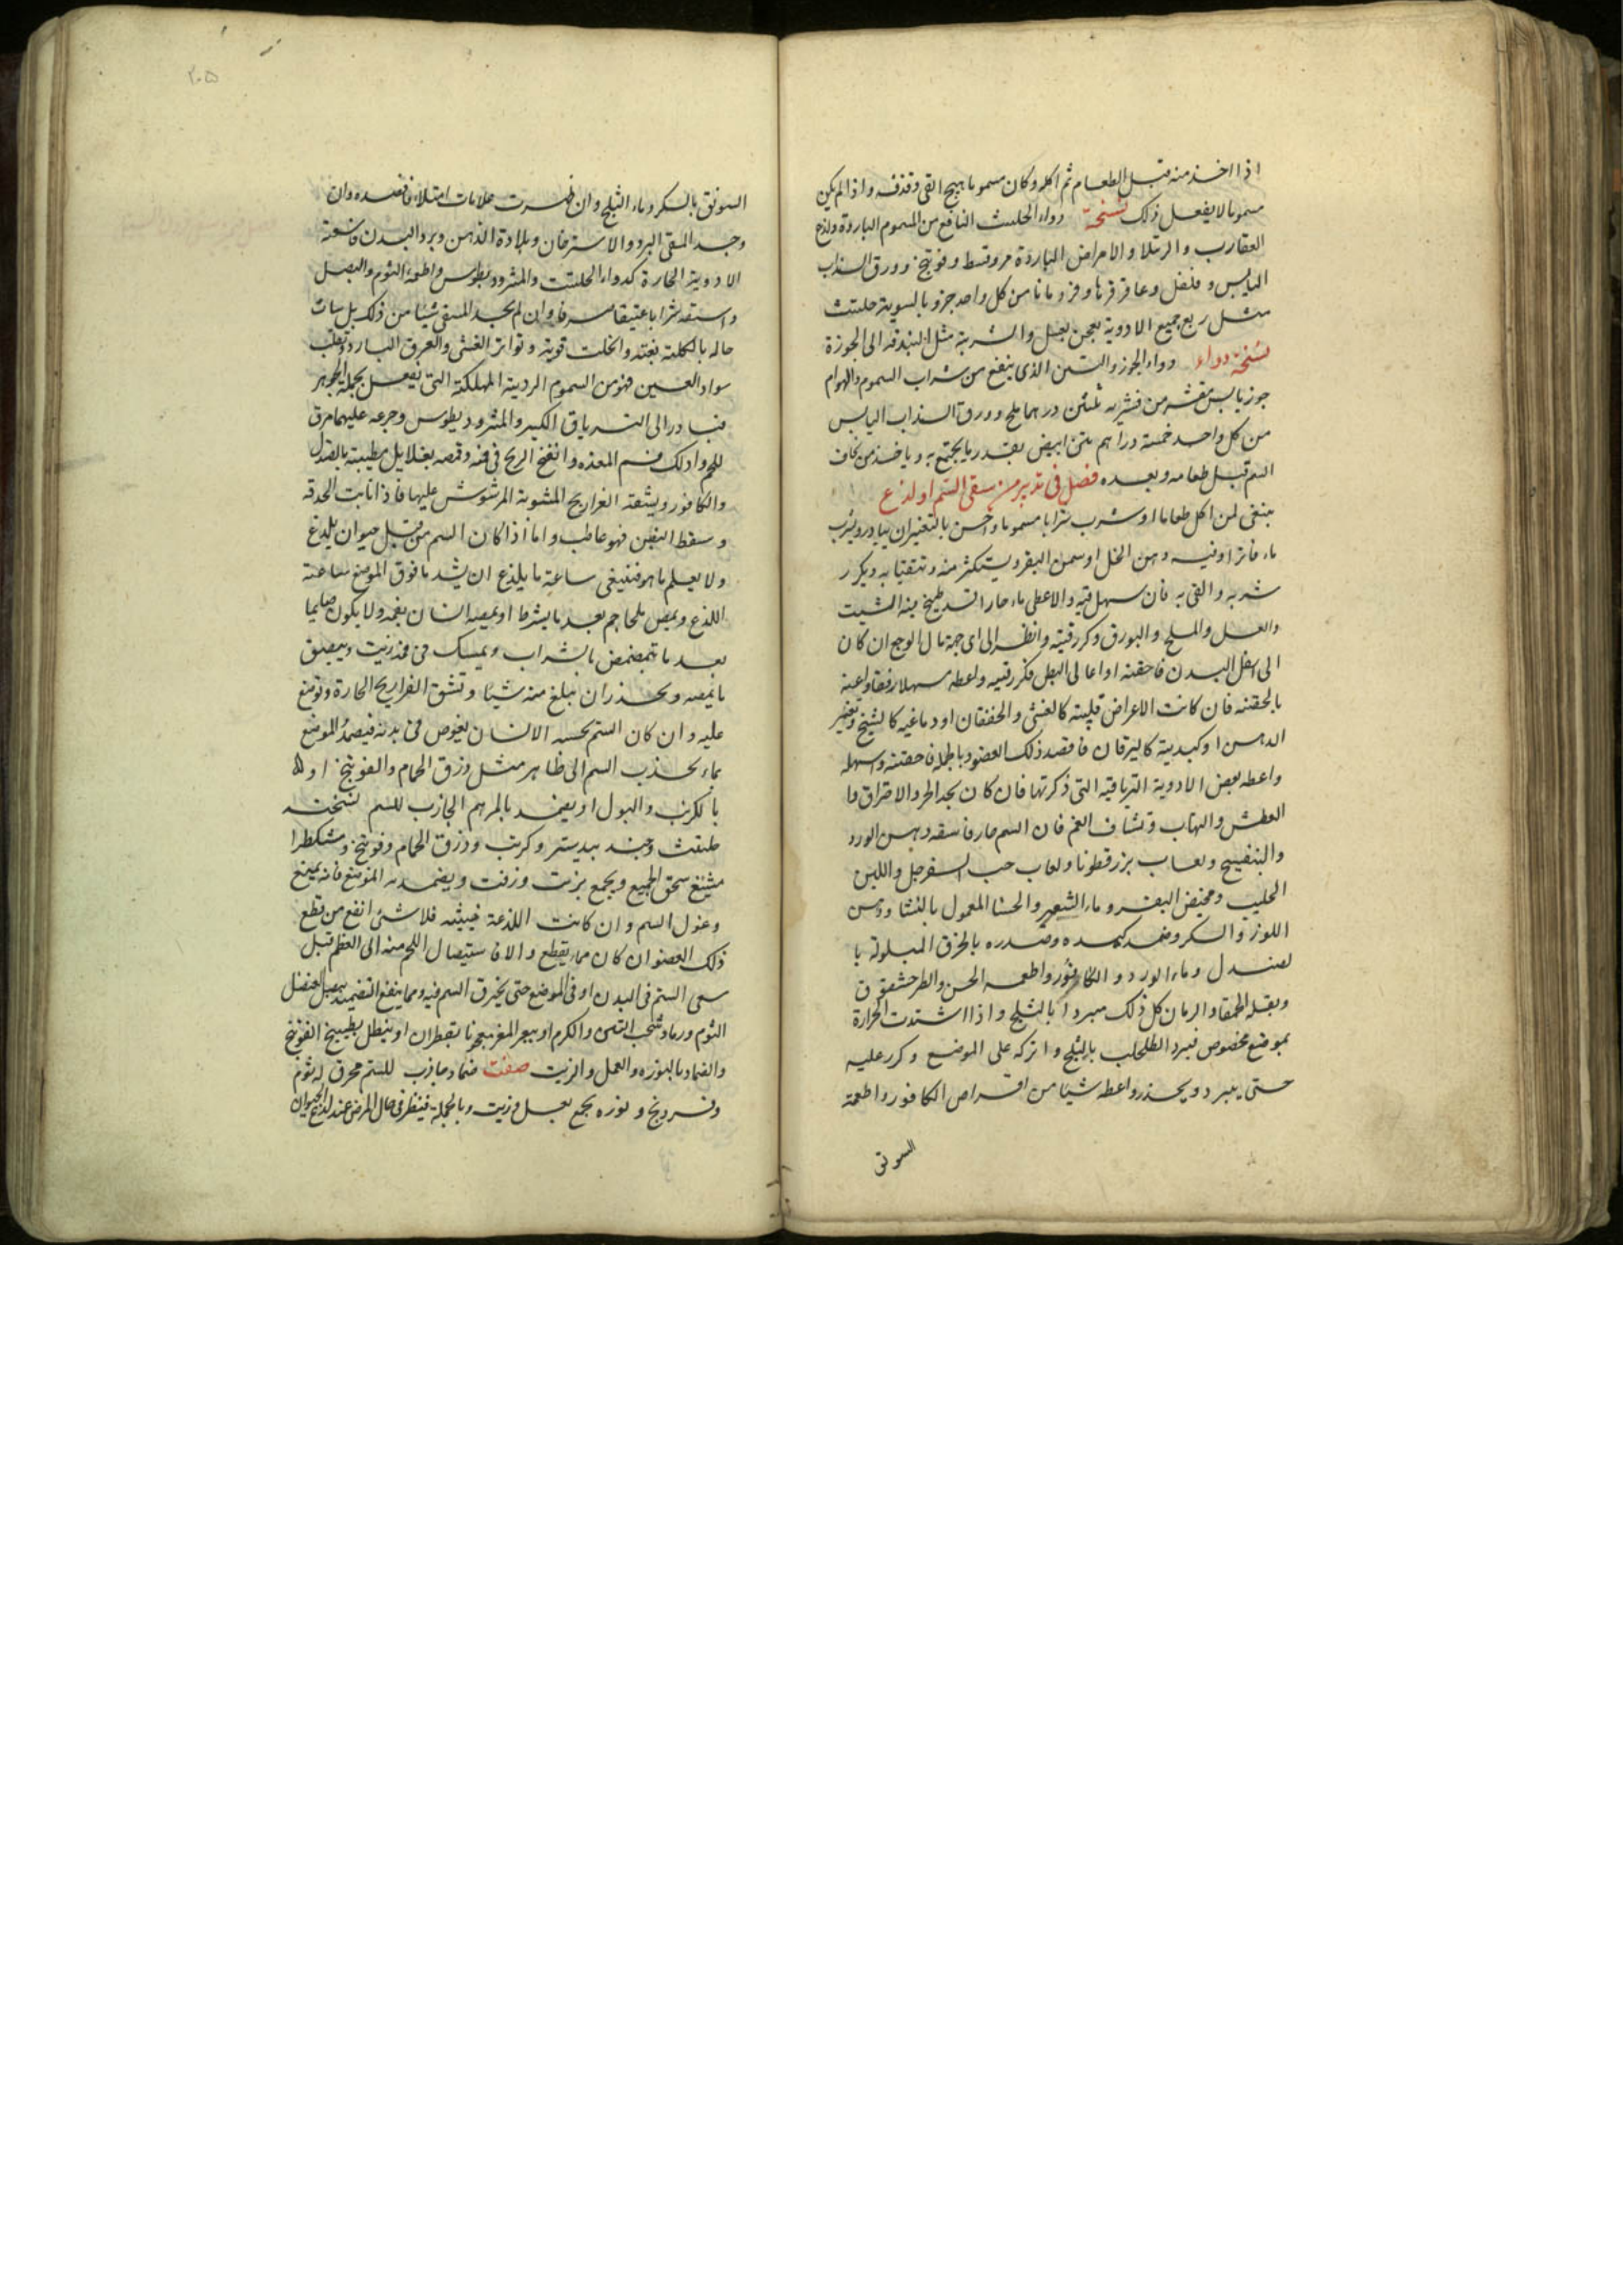 اذا اخذ منه قبل الطعام ثم اكله وكان مسموما هيج القى وقذفه واذا لم يكن
مسموما لا يفعل ذلك نسخة دواء الحلتيث النافع من السموم الباردة ولذع
العقارب والرتيلا والامراض الباردة مر وقسط وفوتنج وورق السذاب
اليابس وفلفل وعاقرقرحا وقردمانا من كل واحد جزو بالسوية حلتيث
مثل ربع جميع الادوية يعجن بعسل والشربة مثل البندقة الى الجوزة
نسخة دواء دواء الجوز والتين الذى ينفع من شراب السموم والهوام
جوز يابس مقشر من قشريه ثلثين درهما ملح وورق السذاب اليابس
من كل واحد خمسة دراهم تين ابيض بقدر ما يجتمع به وياخذ من يخاف
السم قبل طعامه وبعده فصل فى تدبير من سقى السم او لذع
ينبغى لمن اكل طعاما او شرب شرابا مسموما واحس بالتغير ان يبادر ويشرب
ماء فاترا وفيه دهن الخل او سمن البقر ويستكثر منه ويتقيا به ويكرر
شربه والقى به فان سهل قيه والا اعطى ماء حارا قد طبخ فيه الشبت
والعسل والملح والبورق وكرر قيته وانظر الى اى جهة مال الوجع ان كان
الى اسفل البدن فاحقنه او اعالى البطن فكرر قيه واعطه مسهلا رفقا واعنه
بالحقنه فان كانت الاعراض قلبية كالغشى والخفقان او دماغيه كالتشنج وتغير
الذهن او كبدية كاليرقان فاقصد ذلك العضو وبالجملة فاحقنه واسهله
واعطه بعض الادوية الترياقيه التى ذكرتها فان كان يجد الحر والاحتراق وا
العطش والهتاب وتشاف الغم فان السم حار فاسقه دهن الورد
والبنفسج ولعاب بزر قطونا ولعاب حب السفرجل واللبن
الحليب ومخيض البقر وماء الشعير والحسا المعمول بالنشا ودهن
اللوز والسكر وضمد كبده وصدره بالخرق المبلولة با
لصندل وماء الورد والكافور واطعمه الخس والطرحشقوق
وبقلة الحمقا والرمان كل ذلك مبردا بالثلج واذا اشتدت الحرارة
بموضع مخصوص فبرد الطحلب بالثلج واتركه على الموضع وكرر عليه
حتى يبرد ويخدر واعطه شيئا من اقراص الكافور واطعمة
السوىق
٢٠٥
السويق بالسكر وماء الثلج وان ظهرت علامات امتلاء فافصده وان
وجد المسقى البرد والاسترخان وبلادة الذهن وبرد البدن فاسقه
الادوية الحارة كدواء الحلتيت والمثروديطوس واطعمه الثوم والبصل
واسقه شرابا عتيقا صرفا وان لم يجد المسقى شيئا من ذلك بل ساءت
حاله بالكلية بغتة وانحلت قوته وتواتر الغشى والعرق البارد وتقلب
سواد العين فهو من السموم الردية المهلكة التى تفعل بجملة الجوهر
فبادر الى الترياق الكبير والمثروديطوس وجرعه عليهما مرق
اللحم وادلك فم المعده وانفخ الريح فى فمه وقمصه بغلايل مطيبة بالصندل
والكافور ويشقه الفراريح المشوية المرشوش عليها فاذا انابت الحدقه
وسقط النبض فهو عاطب واما اذا كان السم من قبل حيوان يلدغ
ولا يعلم ما هو فينبغى ساعة ما يلذع ان يشد ما فوق الموضع ساعة
اللذع ويمص بالمحاجم بعد ما يشرط او يمصه انسان بفمه ولا يكون صايما
بعد ما تمضمض بالشراب ويمسك فى فمه زيت ويبصق
ما يمصه ويحذر ان يبلع منه شيئا وتشق الفراريح الحارة وتوضع
عليه وان كان السم يحسه الانسان يغوص فى بدنه فيضمد الموضع
بما يجذب السم الى ظاهر مثل ذرق الحمام والفوتنج او
بالكرنب والبول او يضمد بالمرهم الجاذب للسم نسخته
حلتيث وجند بيدستر وكرنب وذرق الحمام وفوتنج ومشكطرا
مشيغ يسحق الجميع ويجمع بزيت وزفت ويضمد به الموضع فانه يمنع
وغول السم وان كانت اللذعة خبيثه فلا شئ انفع من قطع
ذلك العضو ان كان مما يقطع والا فاستيصال اللحم منه الى العظم قبل
سعى السم فى البدن او فى الموضع حتى يحترق السم فيه ومما ينفع التضميد ببصل العنصل
الثوم ورماد خشب التين والكرم او بيعر المغز معجونا بقطران او ينطل بطبيخ الفوتنج
والضماد بالنوره والعسل والزيت صفت ضماد جاذب للسم محرق له ثوم
وزرنيخ ونوره يجمع بعسل وزيت وبالجملة فينظر فى حال المرض عند لذع الحيوان